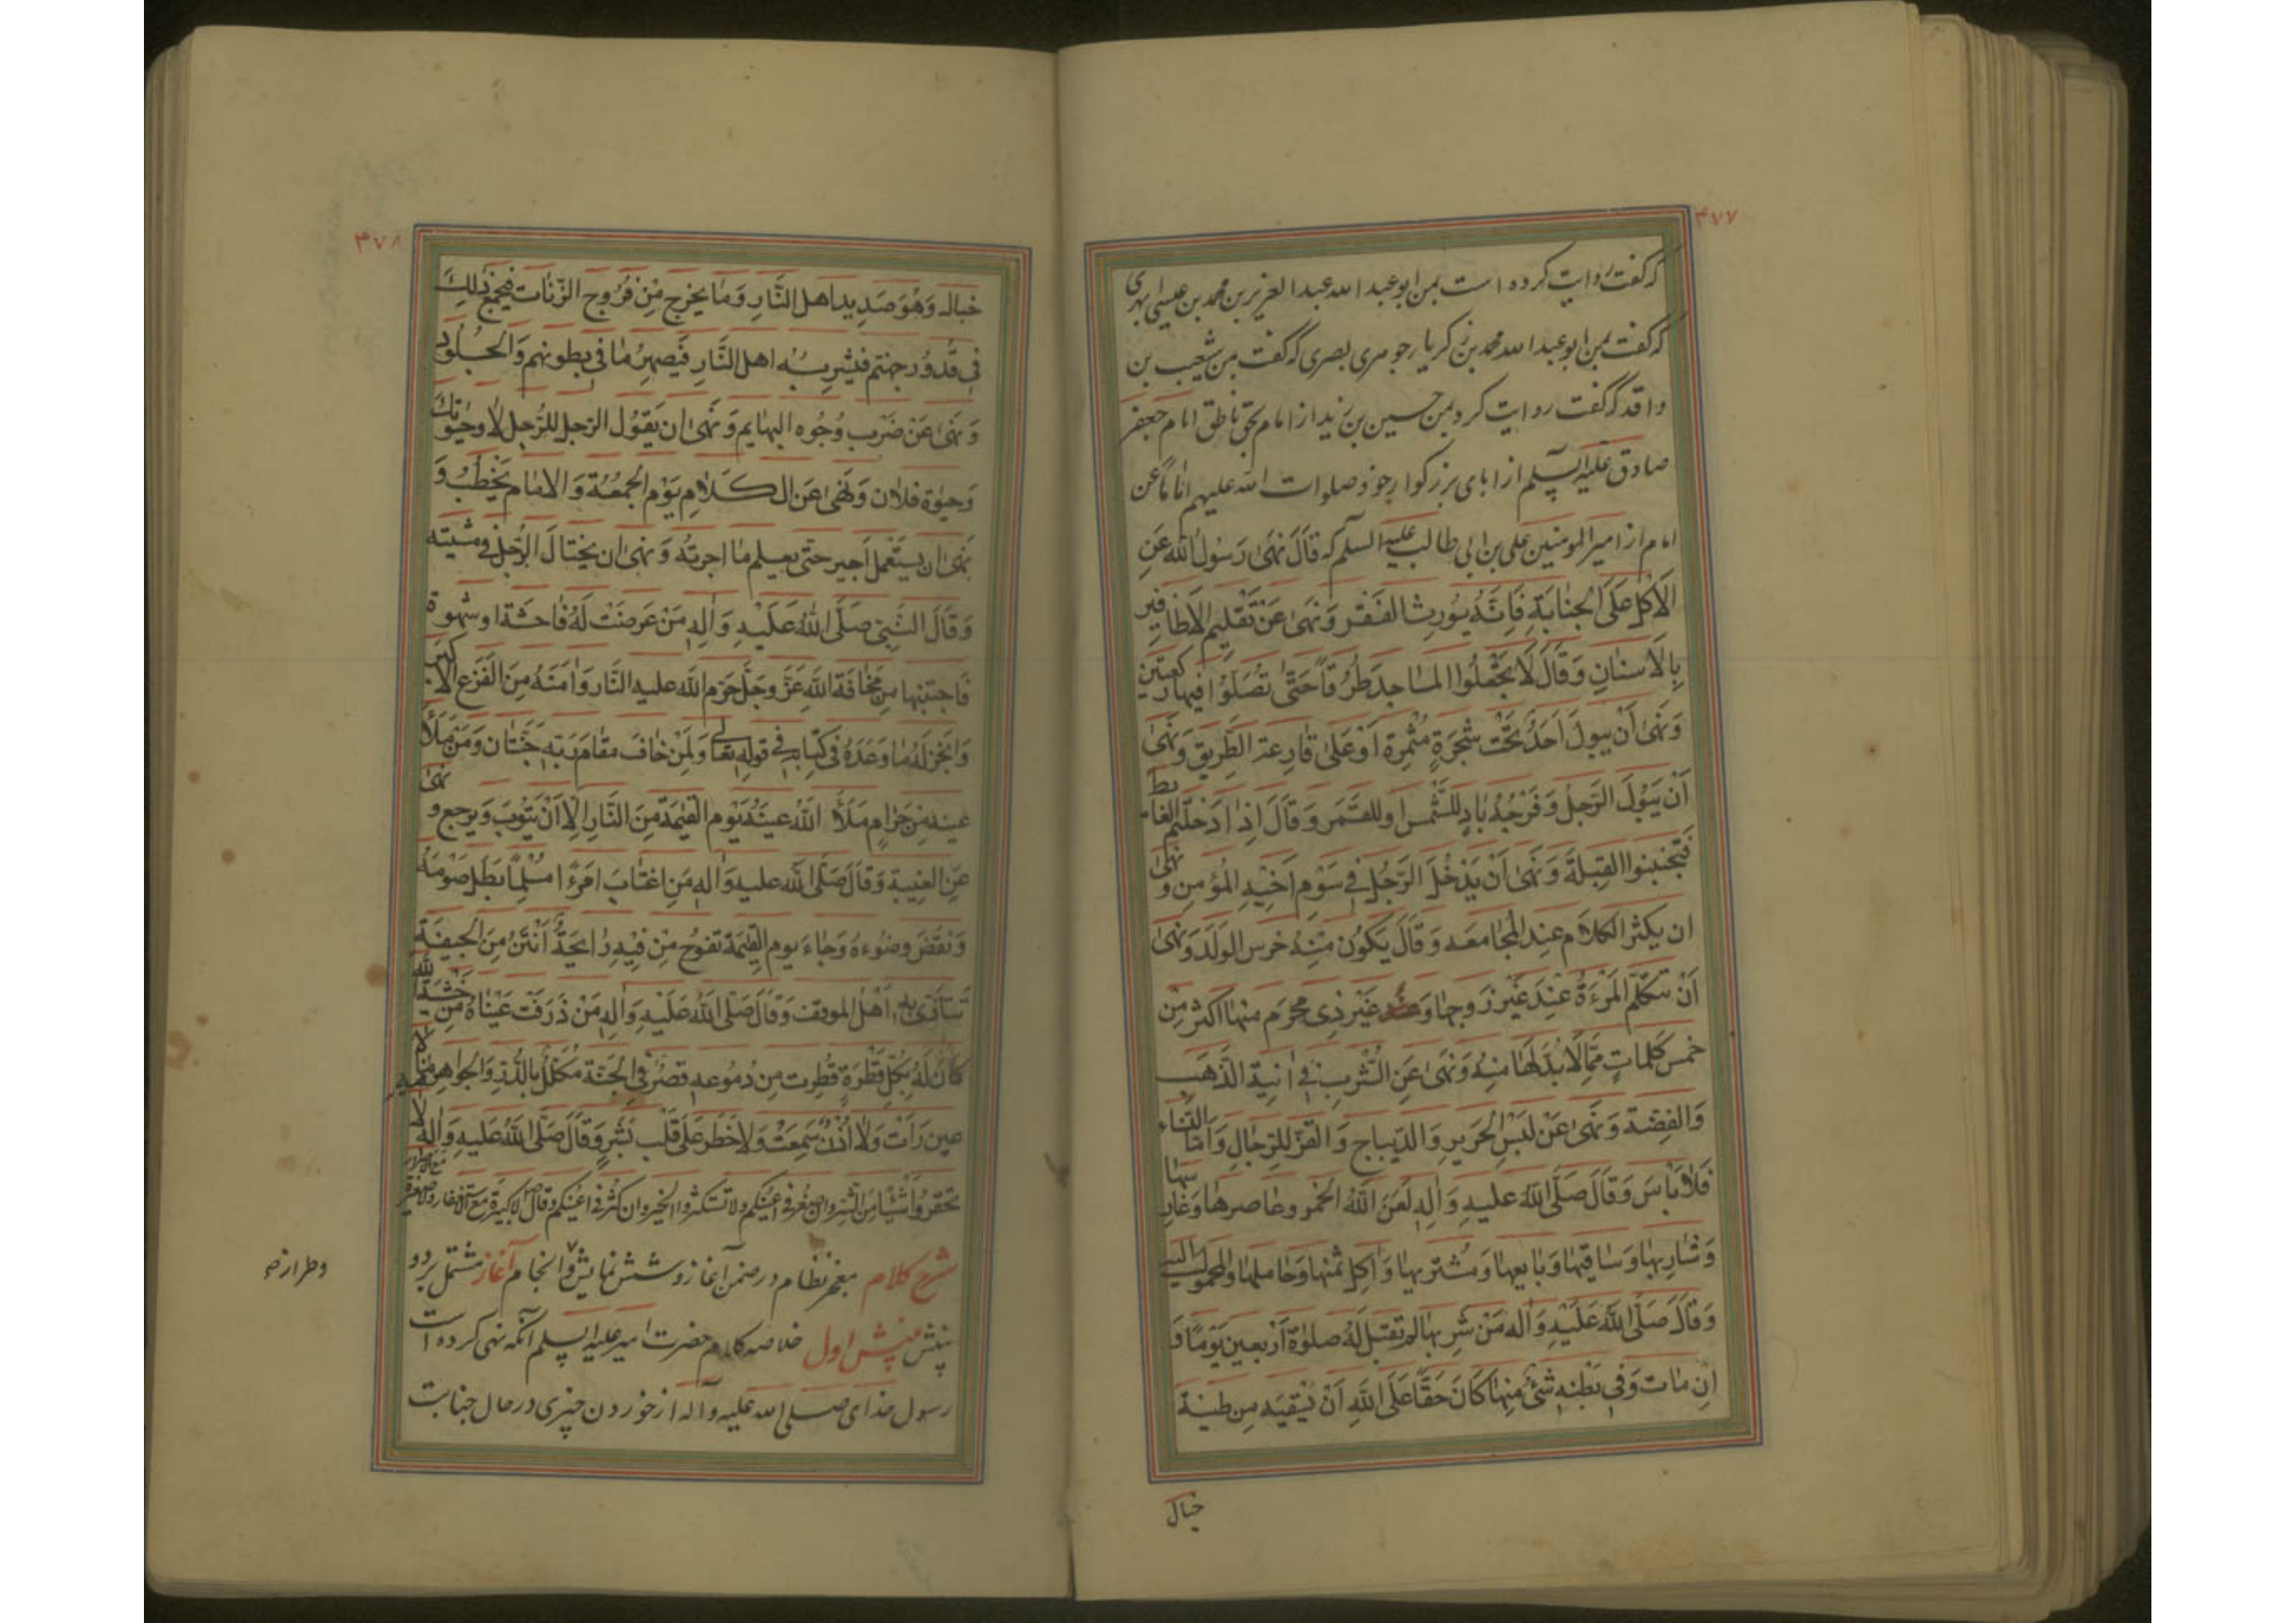 ۴۷۷
که گفت روایت کرده است بمن ابو عبد الله عبد العزیز بن محمد بن عیسی ابهری
که گفت بمن ابو عبد الله محمد بن زکریا جوهری بصری که گفت بمن شعیب بن
واقد که گفت روایت کرد بمن حسین بن زید از امام بحق ناطق امام جعفر
صادق علیه السلم از ابای بزرکوار خود صلوات الله علیهم اماما عن
امام از امیر المومنین علی بن ابی طالب علیه السلم که قَالَ نَهَی رَسُولُ اللهِ عَنِ
الْأَکْلِ عَلَی الْجَنَابَةِ فَإِنَّهُ یُورِثُ الْفَقْرَ وَنَهَی عَنْ تَقْلِیمِ الْأَظَافِیرِ
بِالْأَسْنَانِ وَقَالَ لَا تَجْعَلُوا الْمَسَاجِدَ طُرُقًا حَتَّی تُصَلُّوا فِیهَا رکعتین
وَنَهَی أَنْ یَبُولَ أَحَدٌ تَحْتَ شَجَرَةٍ مُثْمِرَةٍ أَوْ عَلَی قَارِعَةِ الطَّرِیقِ وَنَهَی
أَنْ یَبُولَ الرَّجُلُ وَفَرْجُهُ بَادٍ لِلشَّمْسِ أو للقَمَرِ وَقَالَ إِذَا دَخَلْتُمُ الغائط
فَتَجَنَّبُوا القِبْلَةَ وَنَهَی أَنْ یَدْخُلَ الرَّجُلُ فِی سَوْمِ أَخِیهِ المُؤْمِنِ وَنهی
ان یکثر الکلام عِند المُجامعه وَقَالَ یَکُونُ مِنْهُ خرس الولَد وَنَهَی
أَنْ تَتَکَلَّمَ الْمَرْءَةُ عِنْدَ غَیْرِ زَوجها وَ غَیْرِ ذِی مَحْرَمٍ منها اکثر مِن
خمس کَلِماتٍ مِمَّا لَا بُدَّ لَهَا مِنْهُ وَنَهَی عَنِ الشُّرْبِ فِی آنِیَة الذَّهَب
وَالفِضَّة وَنَهَی عَنْ لبسِ الحَرِیرِ وَالدِّیباجِ وَالقَزِّ لِلرِّجالِ وَأَمّا النّساء
فَلَا بَاسَ وَقَالَ صَلَّی اللهُ علیهِ وَالِهِ لَعَنَ اللهُ الخمر وعاصرها وَغارسها
وَشَارِبهَا وَسَاقِیهَا وَبَایعهَا وَمُشتَرِیها وَآکِلَ ثَمَنِها وَحَاملها وَالمحمولة الیه
وَقَالَ صَلَّی اللهُ عَلَیْهِ وَالهِ مَنْ شَرِبها لم تقبل لَهُ صلوةُ أَرْبَعینَ یَوْمًا وَ
انِ مَات وَفِی بَطْنِهِ شَئٌ مِنها کَانَ حَقًّا عَلَی اللهِ أَنْ یَسْقِیَه مِن طینة
خبال
۴۷۸
خبال وَهُوَ صَدِید اهل النَّارِ وَمَا یخرج مِنْ فُرُوجِ الزُّناتِ فیجمع ذلِكَ
فِی قُدُورِ جهنّم فَیشربهُ اهل النَّارِ فَیصهرُ مَا فِی بطونهم وَالْجُلُود
وَنَهَی عَنْ ضَرْبِ وُجُوه البهایم وَنَهَی ان یَقُول الرَّجل للرَّجل لا وحیوتك
وَحیوة فلان وَنَهَی عَنِ الکَلَامِ یَوْم الجُمعَة وَالامام یَخْطُبُ وَ
نَهَی ان یستعمل اَجیر حتّی یعلم ما اجرته وَنَهَی ان یختال الرَّجُل فی مشیته
وَقَالَ النَّبِی صَلَّی اللهُ عَلَیْهِ وَالِهِ مَنْ عَرَضَتْ لَهُ فَاحشَة او شهوة
فَاجتنبها مِن مَخَافَةِ اللهِ عَزَّ وَجَلَّ حَرَّم الله علیه النَّار وَامَنَهُ مِنَ الفَزَعِ الاکبر
وَانجز لَهُ مَا وَعَدَهُ فِی کِتَابِهِ فِی قوله تعالی وَلِمَنْ خَافَ مقام رَبِّه جَنَّتان وَمَن مَلَأ
عینه مِن حَرَامٍ مَلَأَ اللهُ عینَهُ یَوْم القِیمَة مِنَ النَّارِ الّا اَنْ یَتُوبَ وَیرجع وَنهی
عَنِ الغیبة وَقَالَ صَلَّی الله علیه وَاله مَنِ اغتَابَ امْرَءًا مُسْلِمًا بَطَلَ صَوْمه
وَنقَضَ وضوءهُ وَجَاءَ یوم القِیمَة تفوحُ مِنْ فِیهِ رَایحَةٌ اَنْتَنُ مِنَ الجیفَة
تَتَأَذّی به اَهْلُ الموقف وَقَالَ صَلَّی اللهُ عَلَیْهِ وَالِهِ مَنْ ذَرَفَت عَیْنَاهُ مِن خشیة الله
کَانَ لَهُ بِکُلِّ قَطْرَةٍ قُطِرت مِن دُمُوعِهِ قَصْرٌ فِی الجَنَّة مُکَلَّلٌ بالدُّرِّ وَالجواهر فیه ما لا
عین رَأَتْ وَلَا اُذُنٌ سَمِعَتْ وَلَا خَطَرَ عَلَی قَلْبِ بَشَرٍ وَقَالَ صَلَّی اللهُ عَلَیهِ وَاله لا
تحقروا شَیْئًا مِنَ الشر وان صغر فی اعینکم ولا تستکثروا الخیر وان کثر فی اعینکم وقال لا کبیرة مع الاستغفار ولا صغیرة مع الاصرار
شرح کلام معجز نظام در ضمن آغاز و شش نمایش و انجام آغاز مشتمل بر دو
بینش بینش اول خلاصه کلام حضرت امیر علیه السلم آنکه نهی کرده است
رسول خدای صلی الله علیه وآله از خوردن چیزی در حال جنابت